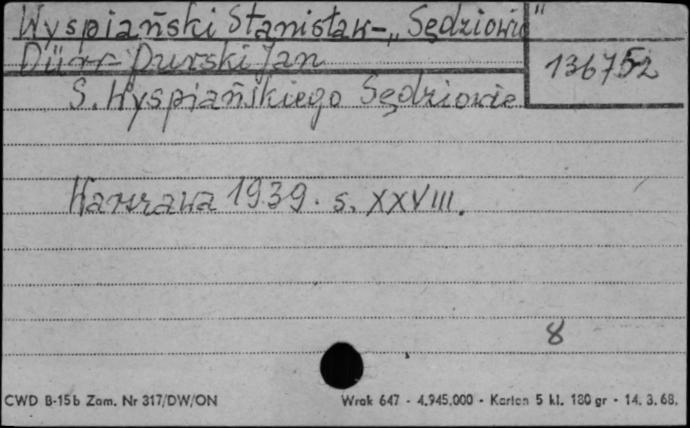 Wyspiański Stanisław - „Sędziowie"
136752
Dürr-Durski Jan
S. Wyspiańskiego Sędziowie
Warszawa 1939. s. XXVIII.
8
CWD B-15b Zam. Nr 317/DW/ON
Wrak 647 - 4.945.000 - Karton 5 kl. 180 gr - 14. 3. 68.